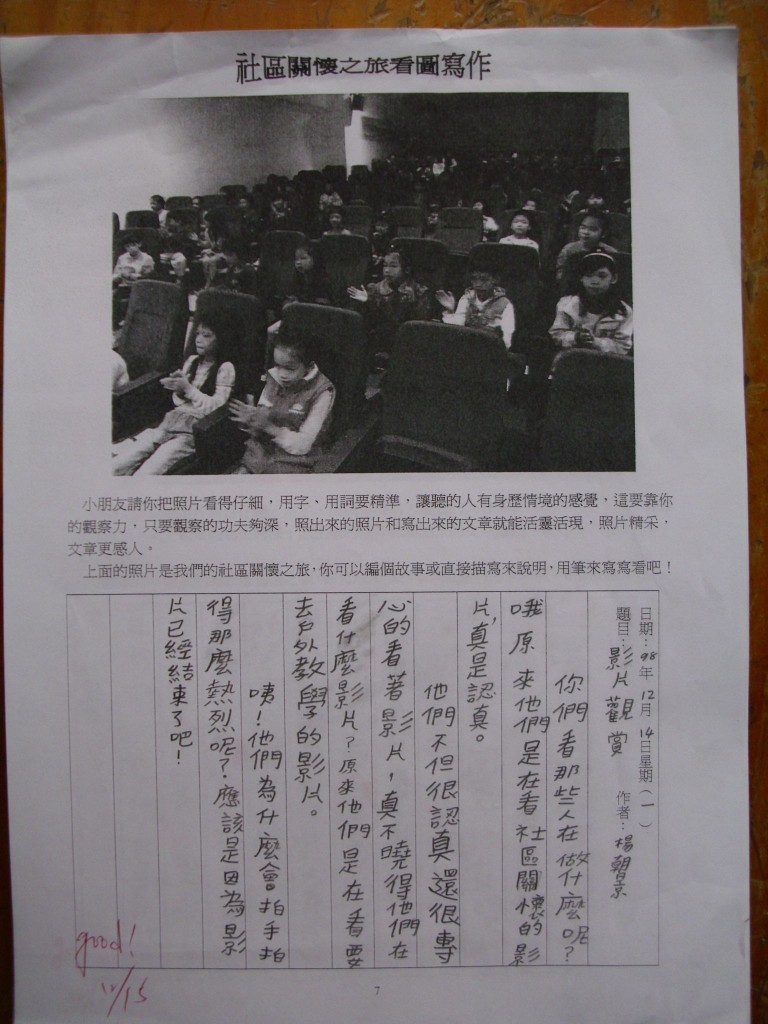 社區關懷之旅看圖寫作
小朋友請你把照片看得仔細，用字、用詞要精準，讓聽的人有身歷情境的感覺，這要靠你
的觀察力，只要觀察的功夫夠深，照出來的照片和寫出來的文章就能活靈活現，照片精采，
文章更感人。
上面的照片是我們的社區關懷之旅，你可以編個故事或直接描寫來說明，用筆來寫寫看吧！
日期：98年12月14日星期（一）
題目：影片觀賞 作者：楊朝京
你們看那些人在做什麼呢？
哦原來他們是在看社區關懷的影
片，真是認真。
他們不但很認真還很專
心的看著影片，真不曉得他們在
看什麼影片？原來他們是在看要
去戶外教學的影片。
咦！他們為什麼會拍手拍
得那麼熱烈呢？應該是因為影
片已經結束了吧！
good!
12/15
7